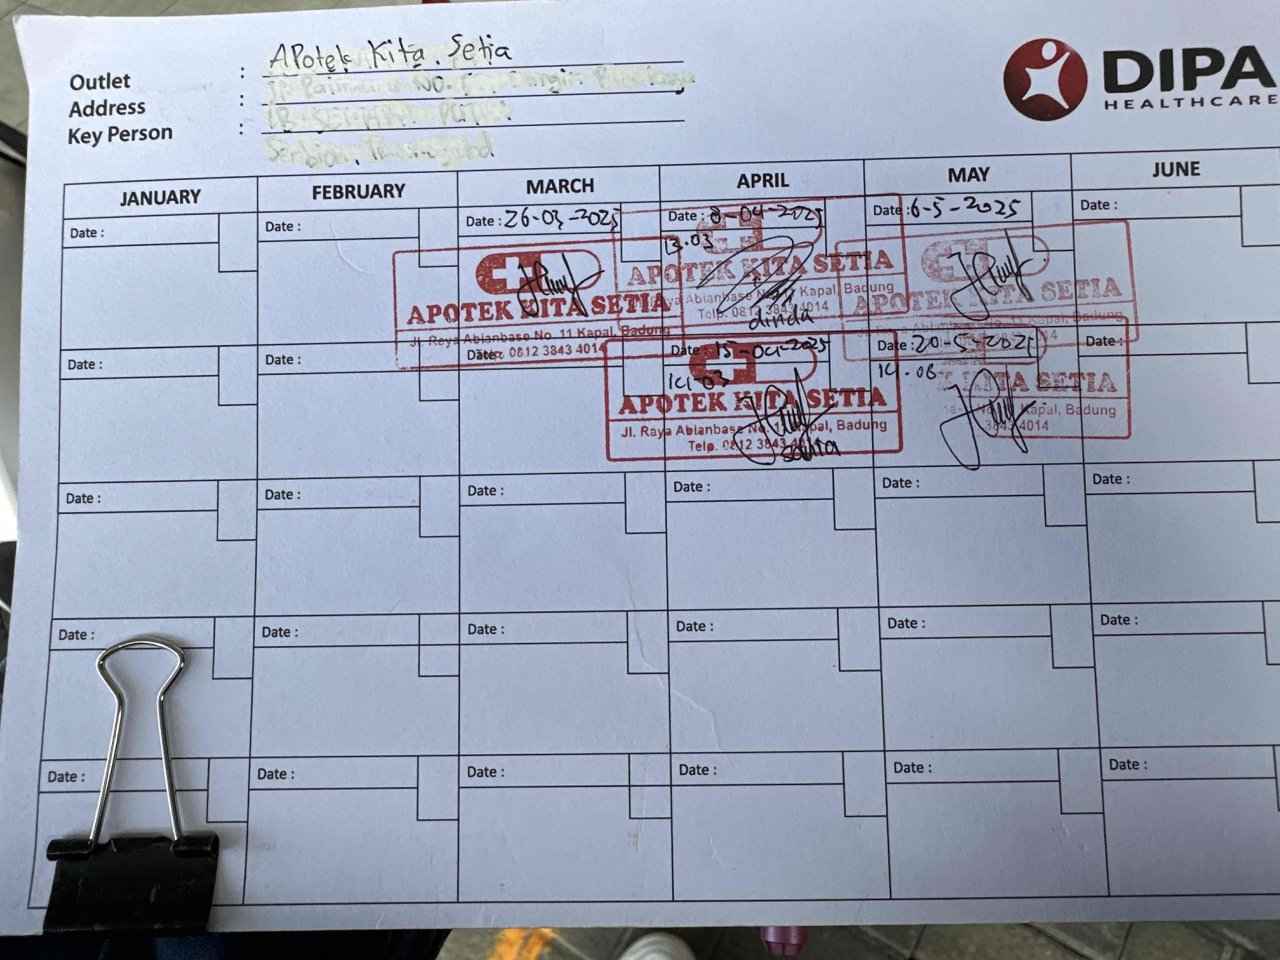 APotek Kita Setia
Outlet :
Address :
Key Person :
DIPA
HEALTHCARE
JANUARY FEBRUARY MARCH APRIL MAY JUNE
Date : Date : Date : 26-03-2025 Date : 8-04-2025 Date : 6-5-2025 Date :
13.03
APOTEK KITA SETIA APOTEK KITA SETIA APOTEK KITA SETIA
Jl. Raya Abianbase No. 11 Kapal, Badung Raya Abianbase No. 11 Kapal, Badung
Telp. 0812 3843 4014
0812 3843 4014
dinda
Date : Date : Date : Date : 15-04-2025 Date : 20-5-2025 Date :
14-03 14.06
APOTEK KITA SETIA KITA SETIA
Jl. Raya Abianbase No. 11 Kapal, Badung Kapal, Badung
Telp. 0812 3843 4014 3843 4014
Date : Date : Date : Date : Date : Date :
Date : Date : Date : Date : Date : Date :
Date : Date : Date : Date : Date : Date :